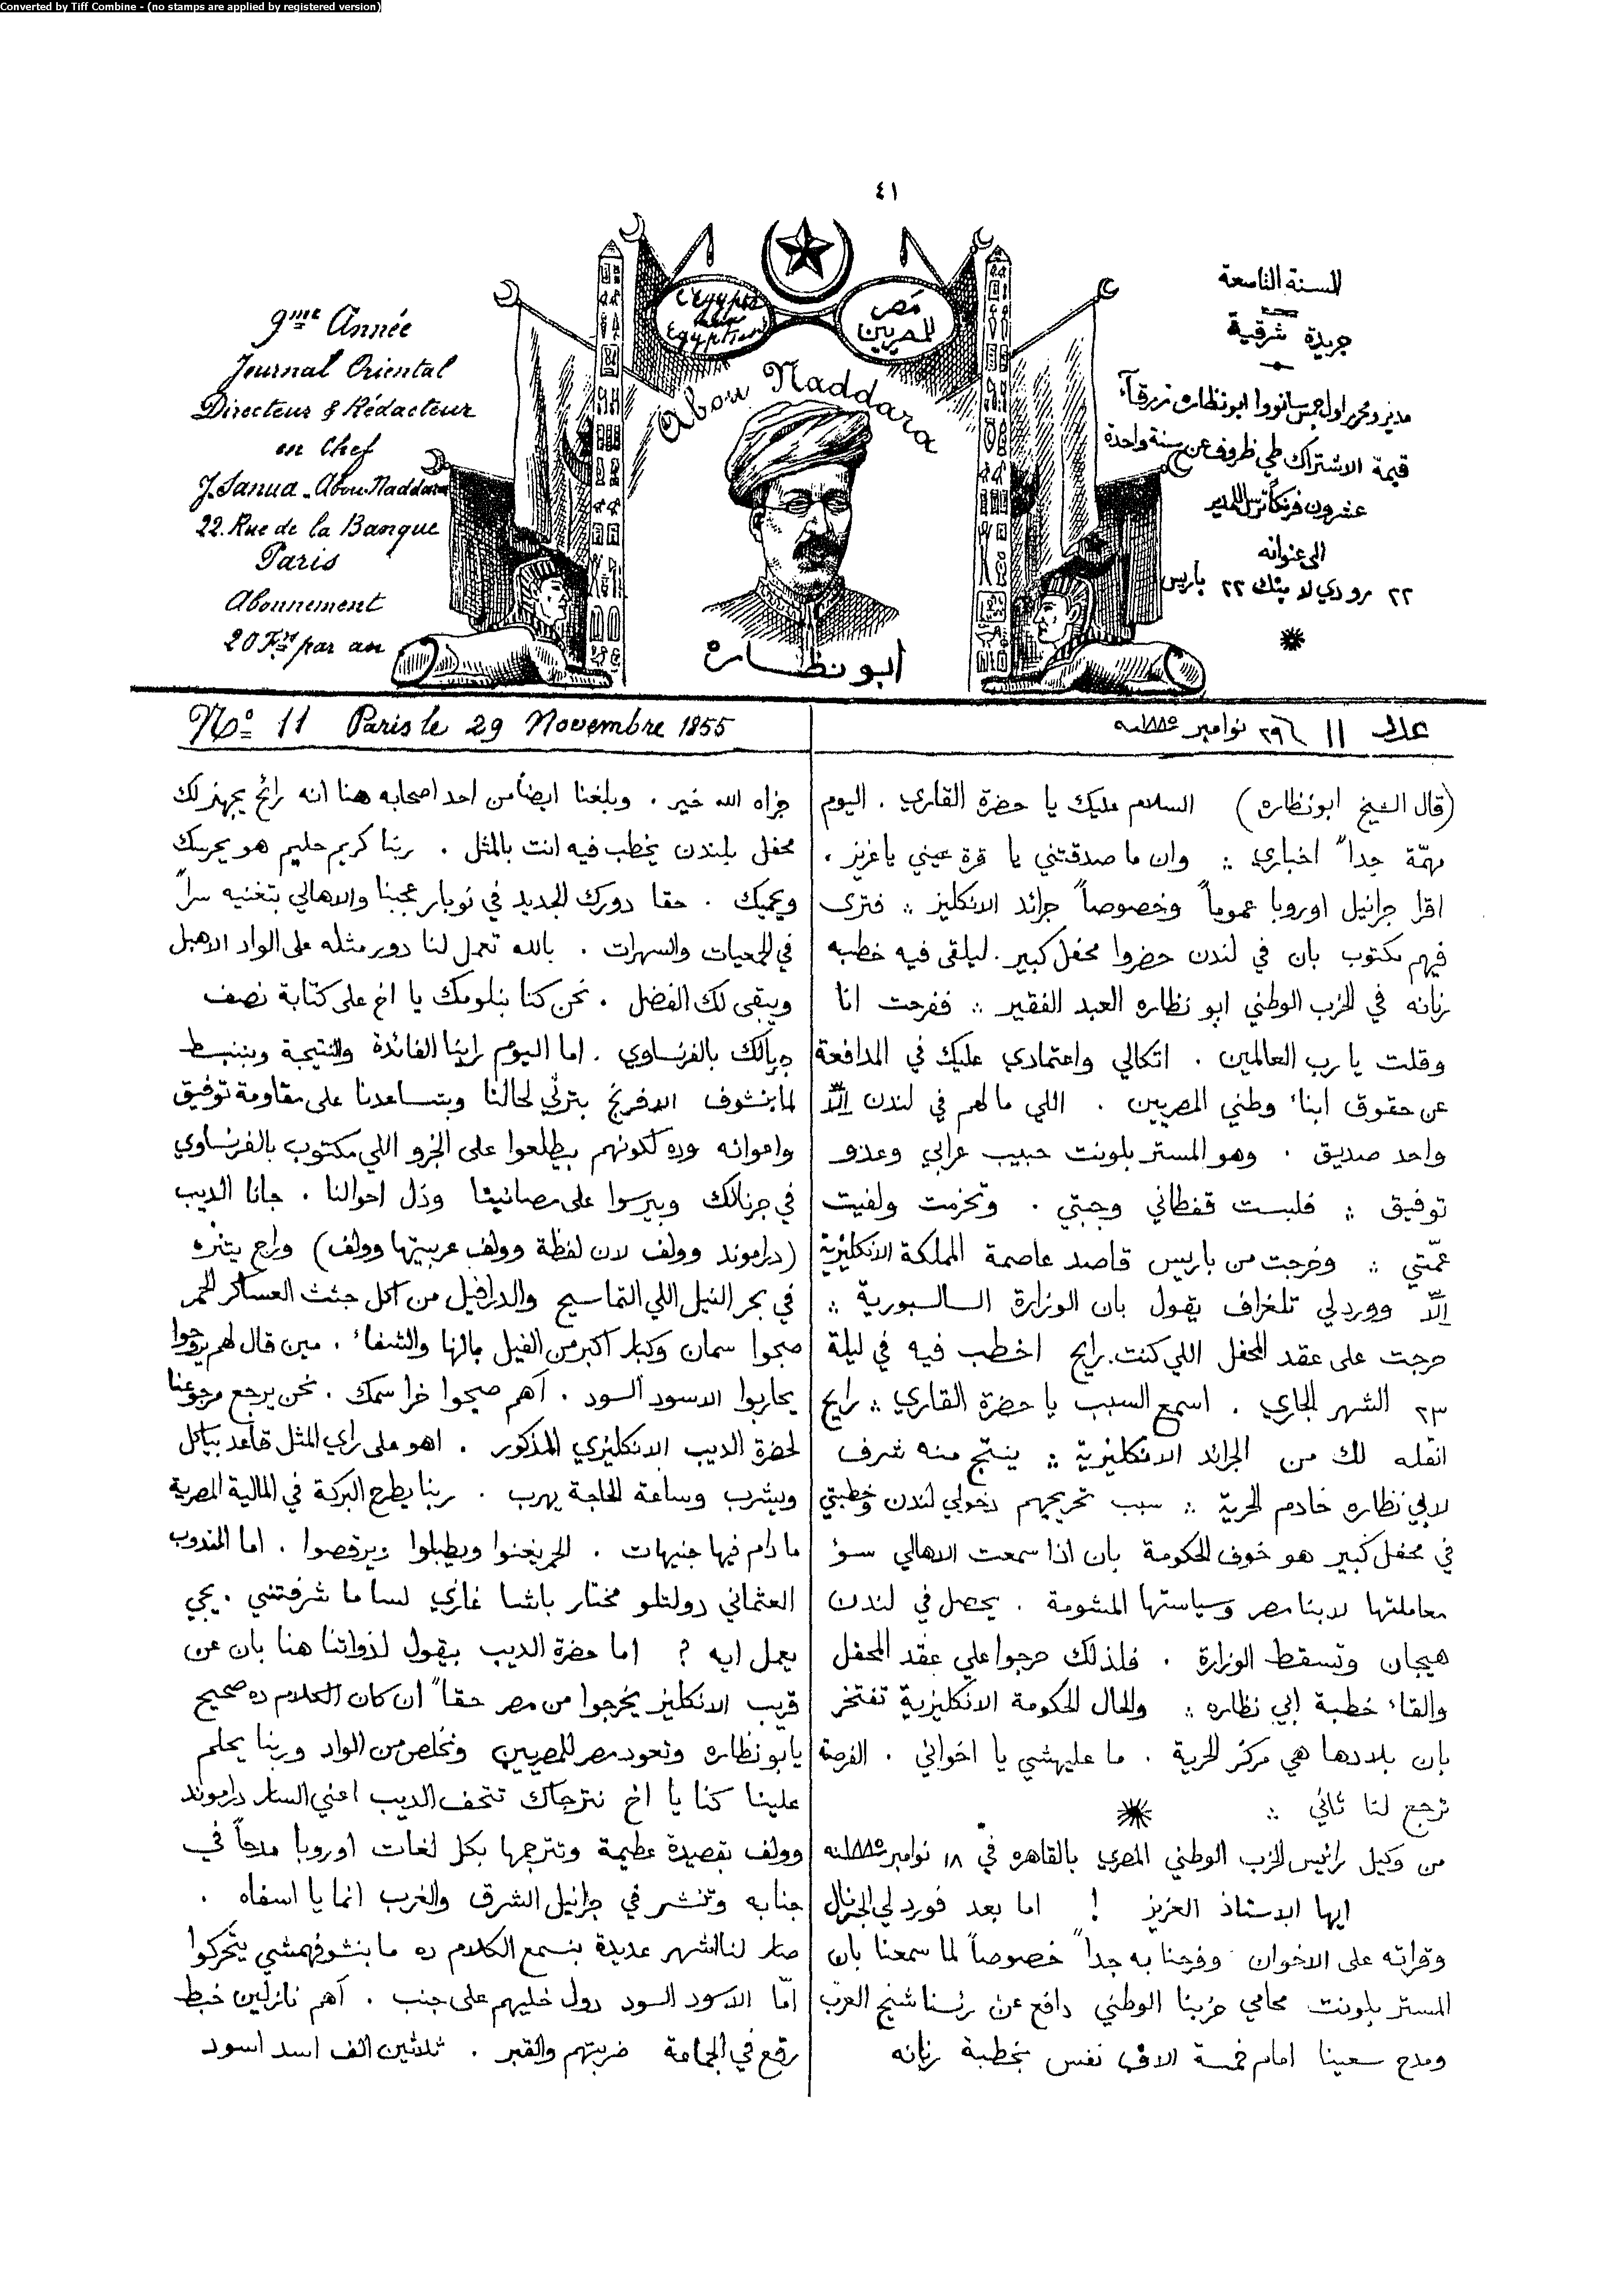 Converted by Tiff Combine - (no stamps are applied by registered version)
٤١
9me Année
Journal Oriental
Directeur & Rédacteur
en Chef
J. Sanua - Abou Naddara
22. Rue de la Banque
Paris
Abonnement
20 Frs par an
L'Egypte
Egyptiens
مَصر
للمصريين
Abou Naddara
أبو نظاره
السنة التاسعة
جريدة شرقية
مدير ومحرر اول جمس سانووا ابو نظاره زرقآء
قيمة الاشتراك طي ظروف عن سنة واحدة
عشرون فرنكاً ترسل للمدير
الى عنوانه
٢٢ رو دي لا بنك ٢٢ باريس
No 11 Paris le 29 Novembre 1855
عدد ١١ ٢٩ نوامبر سنه ١٨٨٥
(قال الشيخ ابو نظاره) السلام عليك يا حضرة القاري . اليوم
مهمّة جداً اخباري ∴ وان ما صدقتني يا قرة عيني يا عزيز .
اقرا جرانيل اوروبا عموماً وخصوصاً جرائد الانكليز ∴ فترى
فيهم مكتوب بان في لندن حضروا محفل كبير . ليلقى فيه خطبه
رنانه في الحزب الوطني ابو نظاره العبد الفقير ∴ ففرحت انا
وقلت يا رب العالمين . اتكالي واعتمادي عليك في المدافعة
عن حقوق ابناء وطني المصريين . اللي ما لهم في لندن الّا
واحد صديق . وهو المستر بلونت حبيب عرابي وعدو
توفيق ∴ فلبست قفطاني وجبتي . وتحزمت ولفيت
عمّتي ∴ وخرجت من باريس قاصد عاصمة المملكة الانكليزية
الّا وورد لي تلغراف يقول بان الوزارة السالسبورية ∴
حرجت على عقد المحفل اللي كنت رايح اخطب فيه في ليلة
٢٣ الشهر الجاري . اسمع السبب يا حضرة القاري ∴ رايح
انقله لك من الجرائد الانكليزية ∴ ينتج منه شرف
لابي نظاره خادم الحرية ∴ سبب تحريجهم دخولي لندن وخطبتي
في محفل كبير هو خوف الحكومة بان اذا سمعت الاهالي سوء
معاملتها لابنا مصر وسياستها المشومة . يحصل في لندن
هيجان وتسقط الوزارة . فلذلك حرجوا على عقد المحفل
والقاء خطبة ابي نظاره ∴ والحال الحكومة الانكليزية تفتخر
بان بلادها هي مركز الحرية . ما عليهشي يا اخواني . الفرصة
ترجع لنا ثاني ∴
من وكيل رائيس الحزب الوطني المصري بالقاهره في ١٨ نوامبر سنه ١٨٨٥
ايها الاستاذ العزيز ! اما بعد فورد لي الجرنال
وقراته على الاخوان وفرحنا به جداً خصوصاً لما سمعنا بان
المستر بلونت محامي حزبنا الوطني دافع عن رئسنا شيخ العرب
ومدح سعينا امام خمسة الاف نفس بخطبة رنانه
جزاه الله خير . وبلغنا ايضا من احد اصحابه هنا انه رائح يجهز لك
محفل بلندن يخطب فيه انت بالمثل . ربنا كريم حليم هو يحرسك
ويحميك . حقا دورك الجديد في نوبار عجبنا والاهالي بتغنيه سراً
في الجمعيات والسهرات . بالله تعمل لنا دور مثله على الواد الاهبل
ويبقى لك الفضل . نحن كنا بنلومك يا اخ على كتابة نصف
جرنالك بالفرنساوي . اما اليوم راينا الفائدة والنتيجة وبننبسط
لما بنشوف الافرنج بترثي لحالنا وبتساعدنا على مقاومة توفيق
واعوانه وده لكونهم بيطلعوا على الجزو اللي مكتوب بالفرنساوي
في جرنالك وبيرسوا على مصائبنا وذل احوالنا . جانا الديب
(دراموند وولف لان لفظة وولف عربيتها وولف) وراح يتنزه
في بحر النيل اللي التماسيح والدرافيل من اكل جثث العساكر الحمر
صبحوا سمان وكبار اكبر من الفيل بالهنا والشفاء . مين قال لهم يروحوا
يحاربوا الاسود السود . آهم صبحوا خرا سمك . نحن يرجع مرجوعنا
لحضرة الديب الانكليزي المذكور . اهو على راي المثل قاعد بياكل
ويشرب وساعة الحاجة يهرب . ربنا يطرح البركة في المالية المصرية
ما دام فيها جنيهات . الحمر يغنوا ويطبلوا ويرقصوا . اما المندوب
العثماني دولتلو مختار باشا غازي لسا ما شرفتني . يجي
يعمل ايه ؟ اما حضرة الديب بيقول لذواتنا هنا بان عن
قريب الانكليز يخرجوا من مصر حقاً ان كان الكلام ده صحيح
يابو نظاره وتعود مصر للمصريين ونخلص من الواد وربنا يحلم
علينا كنا يا اخ نترجاك تتحف الديب اعني السار دراموند
وولف بقصيدة عظيمة وتترجمها بكل لغات اوروبا مدحاً في
جنابه وتنشر في جرانيل الشرق والغرب انما يا اسفاه .
صار لنا اشهر عديدة بنسمع الكلام ده ما بنشوفهمشي يتحركوا
امّا الاسود السود دول خليهم على جنب . آهم نازلين خبط
رقع في الجماعة ضربتهم والقبر . ثلاثين الف اسد اسود